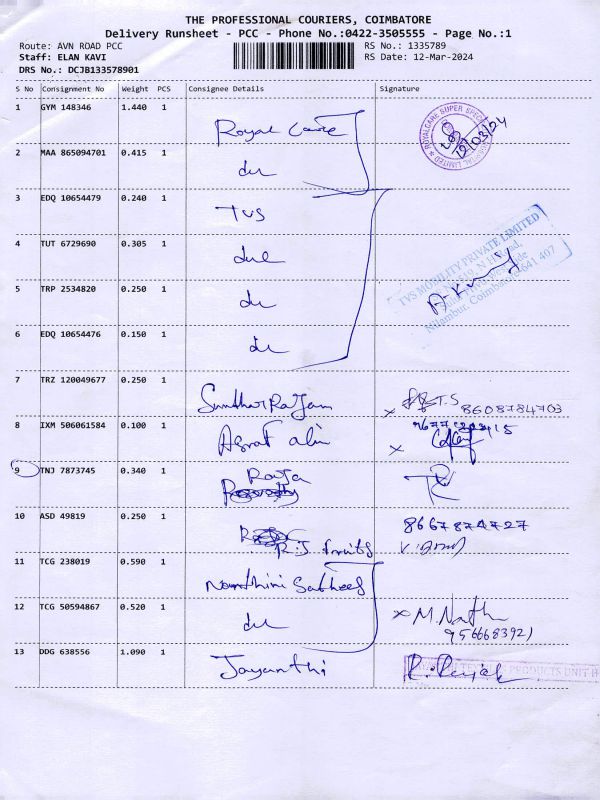 THE PROFESSIONAL COURIERS, COIMBATORE
Delivery Runsheet - PCC - Phone No.:0422-3505555 - Page No.:1
Route: AVN ROAD PCC RS No.: 1335789
Staff: ELAN KAVI RS Date: 12-Mar-2024
DRS No.: DCJB133578901
S No Consignment No Weight PCS Consignee Details Signature
1 GYM 148346 1.440 1 Royal Care
ROYALCARE SUPER 12/03/24
2 MAA 865094701 0.415 1 du
3 EDQ 10654479 0.240 1 TVS
TVS MOBILITY PRIVATE LIMITED
4 TUT 6729690 0.305 1 due
Nilambur, Coimbatore-641 407
5 TRP 2534820 0.250 1 du
6 EDQ 10654476 0.150 1 du
7 TRZ 120049677 0.250 1 x 8608784703
8 IXM 506061584 0.100 1 x
9 TNJ 7873745 0.340 1 Raja
10 ASD 49819 0.250 1 R.J fruits 8667874727
11 TCG 238019 0.590 1 Nandhini Satheesh
12 TCG 50594867 0.520 1 du x M. Nath
9566683921
13 DDG 638556 1.090 1 Jayanthi